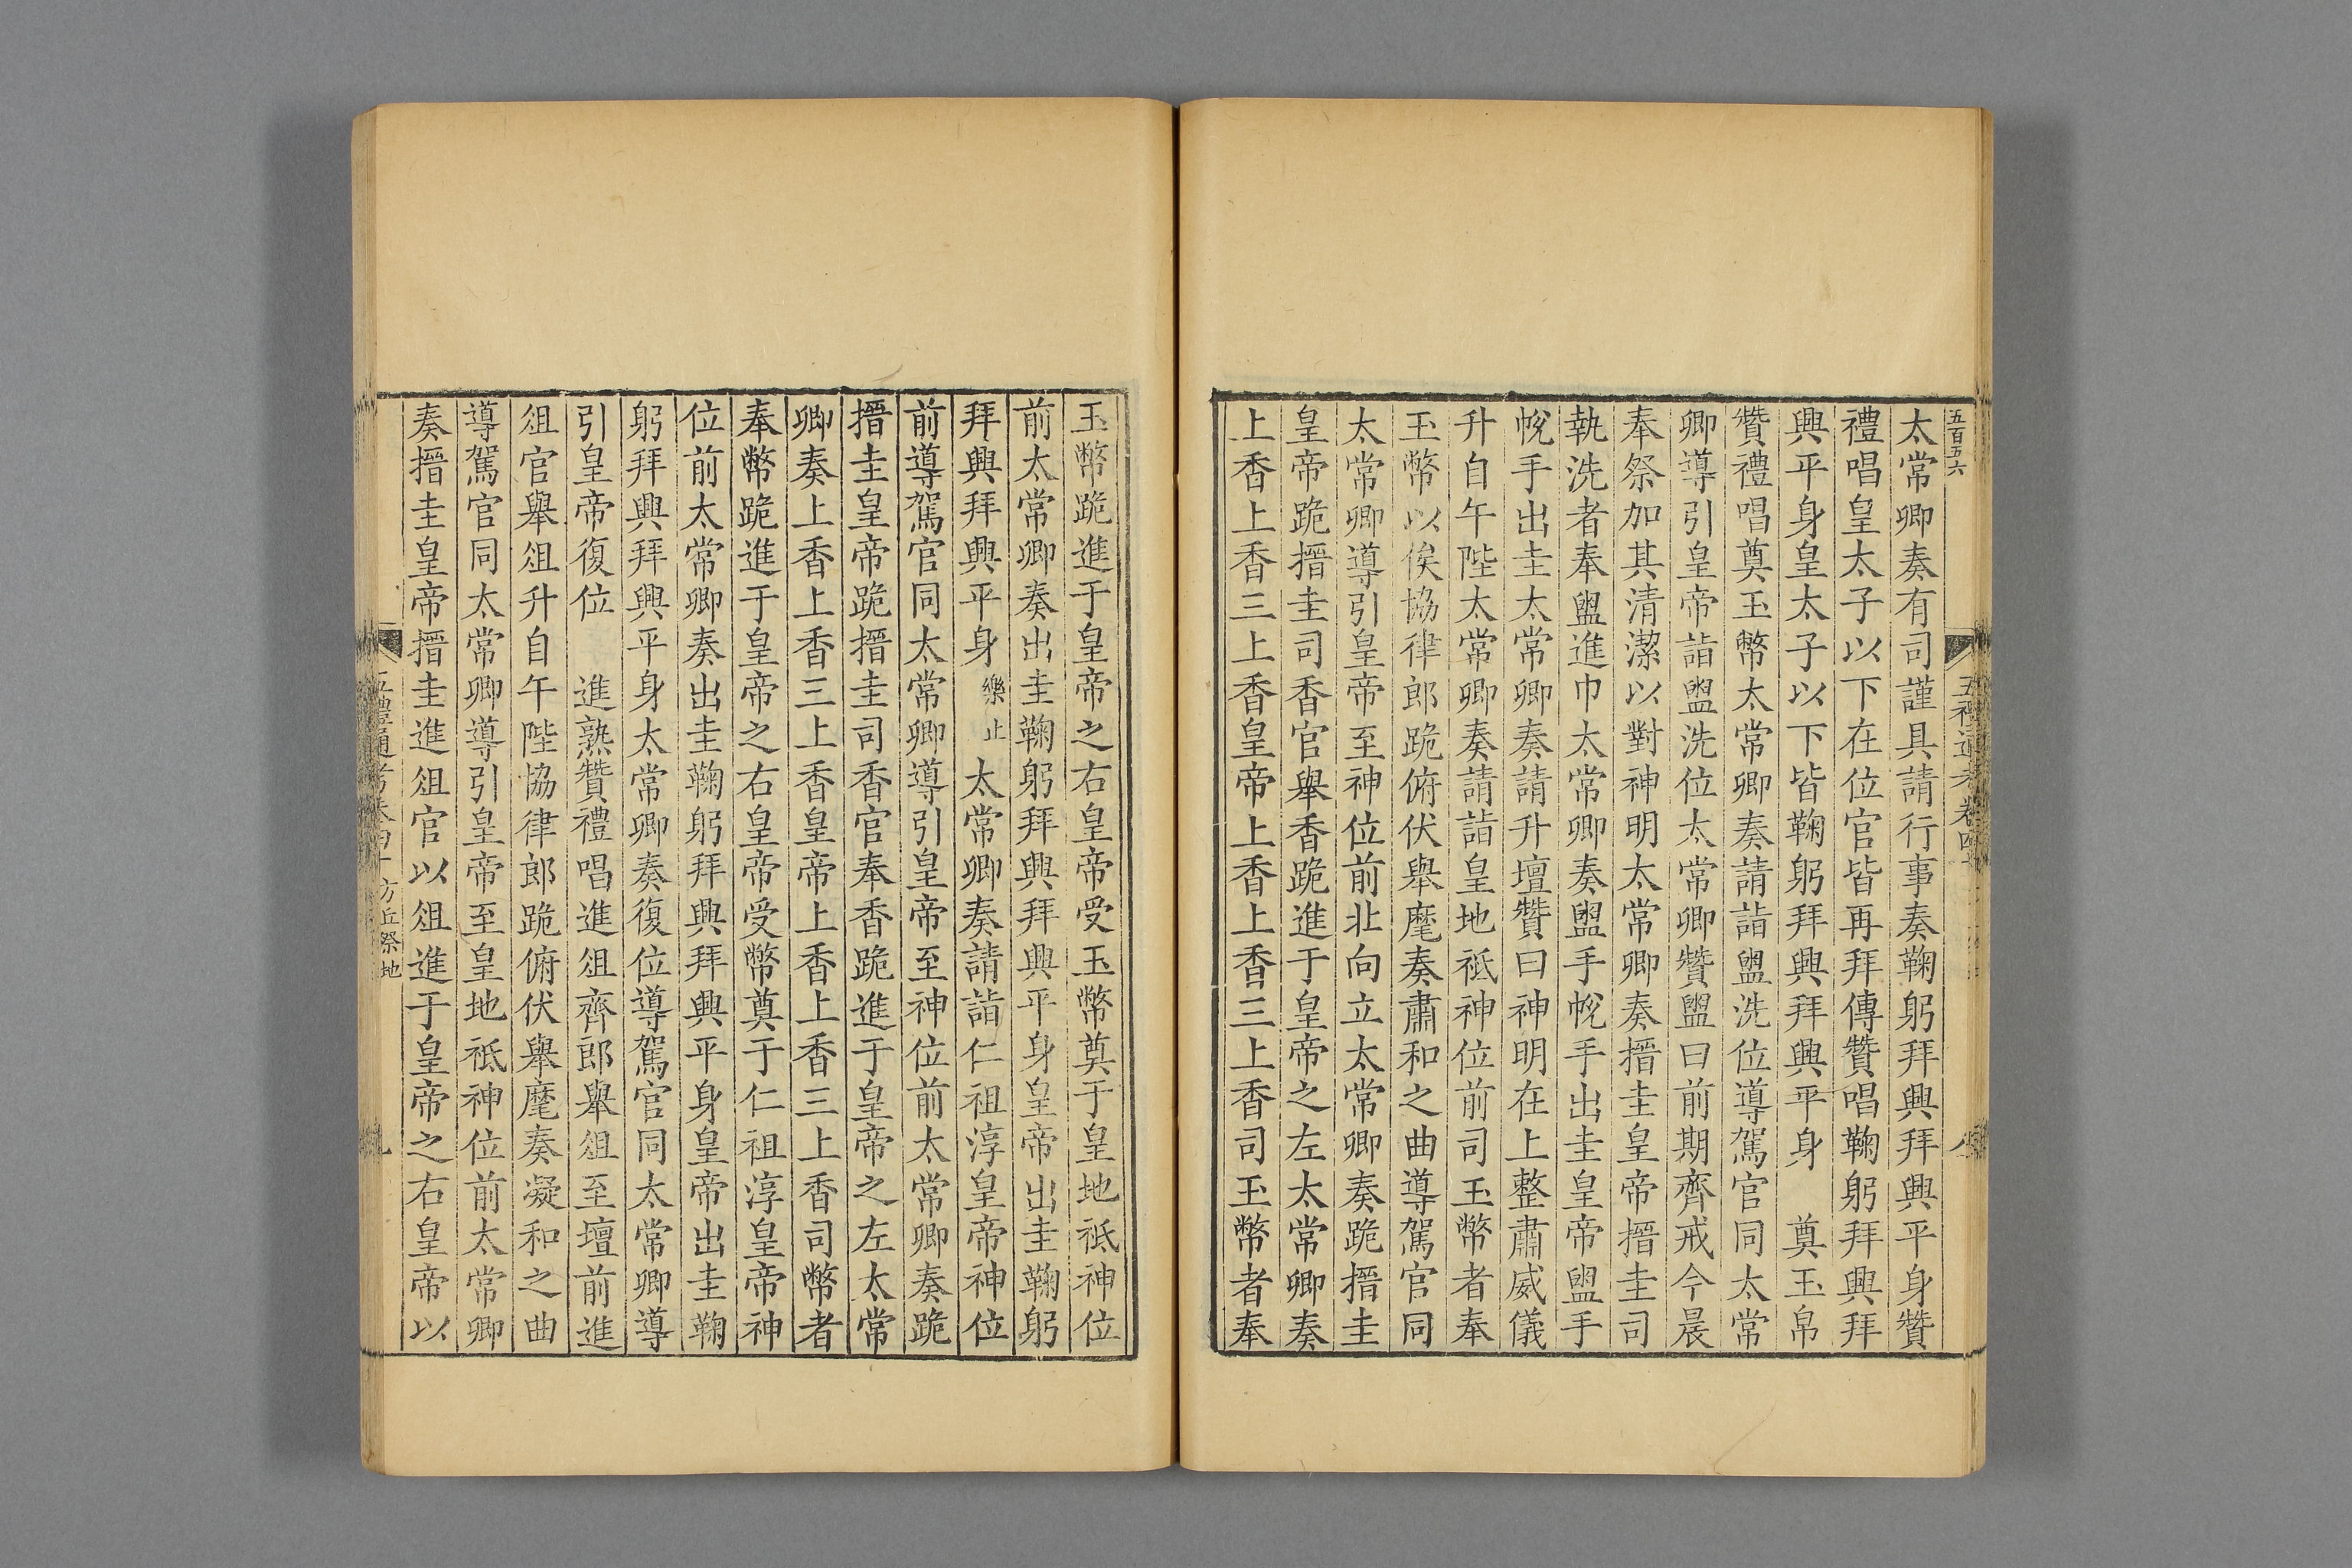 五百五六
太常卿奏有司謹具請行事奏鞠躬拜興拜興平身贊
禮唱皇太子以下在位官皆再拜傳贊唱鞠躬拜興拜
興平身皇太子以下皆鞠躬拜興拜興平身　奠玉帛
贊禮唱奠玉幣太常卿奏請詣盥洗位導駕官同太常
卿導引皇帝詣盥洗位太常卿贊盥曰前期齊戒今晨
奉祭加其清潔以對神明太常卿奏搢圭皇帝搢圭司
執洗者奉盥進巾太常卿奏盥手帨手出圭皇帝盥手
帨手出圭太常卿奏請升壇贊曰神明在上整肅威儀
升自午陛太常卿奏請詣皇地祇神位前司玉幣者奉
玉幣以俟協律郎跪俯伏舉麾奏肅和之曲導駕官同
太常卿導引皇帝至神位前北向立太常卿奏跪搢圭
皇帝跪搢圭司香官舉香跪進于皇帝之左太常卿奏
上香上香三上香皇帝上香上香三上香司玉幣者奉
玉幣跪進于皇帝之右皇帝受玉幣奠于皇地祇神位
前太常卿奏出圭鞠躬拜興拜興平身皇帝出圭鞠躬
拜興拜興平身樂止　太常卿奏請詣仁祖淳皇帝神位
前導駕官同太常卿導引皇帝至神位前太常卿奏跪
搢圭皇帝跪搢圭司香官奉香跪進于皇帝之左太常
卿奏上香上香三上香皇帝上香上香三上香司幣者
奉幣跪進于皇帝之右皇帝受幣奠于仁祖淳皇帝神
位前太常卿奏出圭鞠躬拜興拜興平身皇帝出圭鞠
躬拜興拜興平身太常卿奏復位導駕官同太常卿導
引皇帝復位　進熟贊禮唱進俎齊郎舉俎至壇前進
俎官舉俎升自午陛協律郎跪俯伏舉麾奏凝和之曲
導駕官同太常卿導引皇帝至皇地祇神位前太常卿
奏搢圭皇帝搢圭進俎官以俎進于皇帝之右皇帝以
方丘祭地